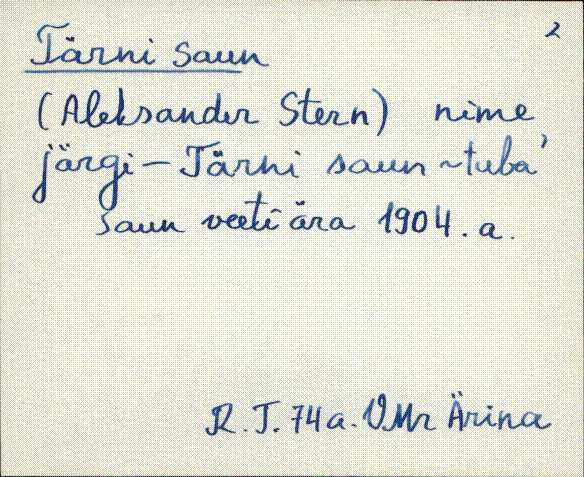 2
Tärni saun
(Aleksander Stern) nime
järgi – Tärni saun ~tuba'
saun veeti ära 1904. a.
R. T. 74 a. VMr Ärina